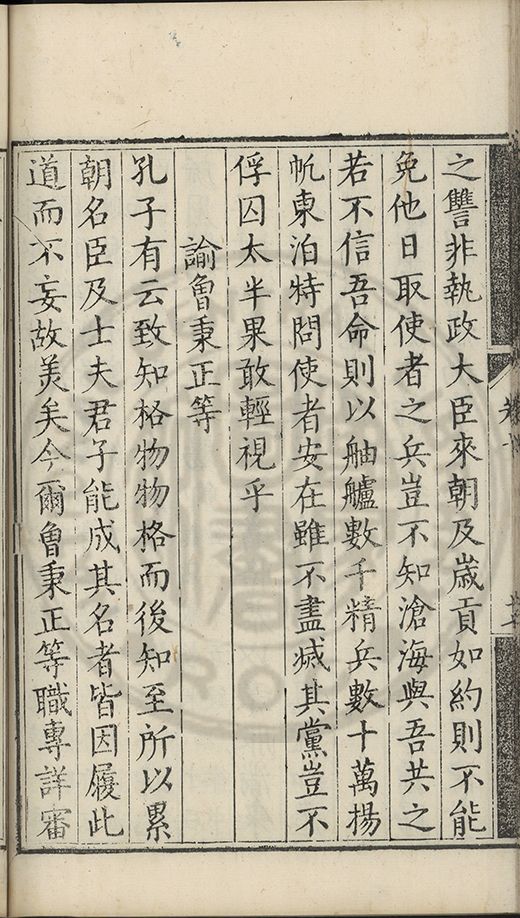 之讐非執政大臣來朝及歲貢如約則不能
免他日取使者之兵豈不知滄海與吾共之
若不信吾命則以舳艫數千精兵數十萬揚
帆東泊特問使者安在雖不盡滅其黨豈不
俘囚太半果敢輕視乎
諭魯秉正等
孔子有云致知格物物格而後知至所以累
朝名臣及士夫君子能成其名者皆因履此
道而不妄故美矣今爾魯秉正等職專詳審